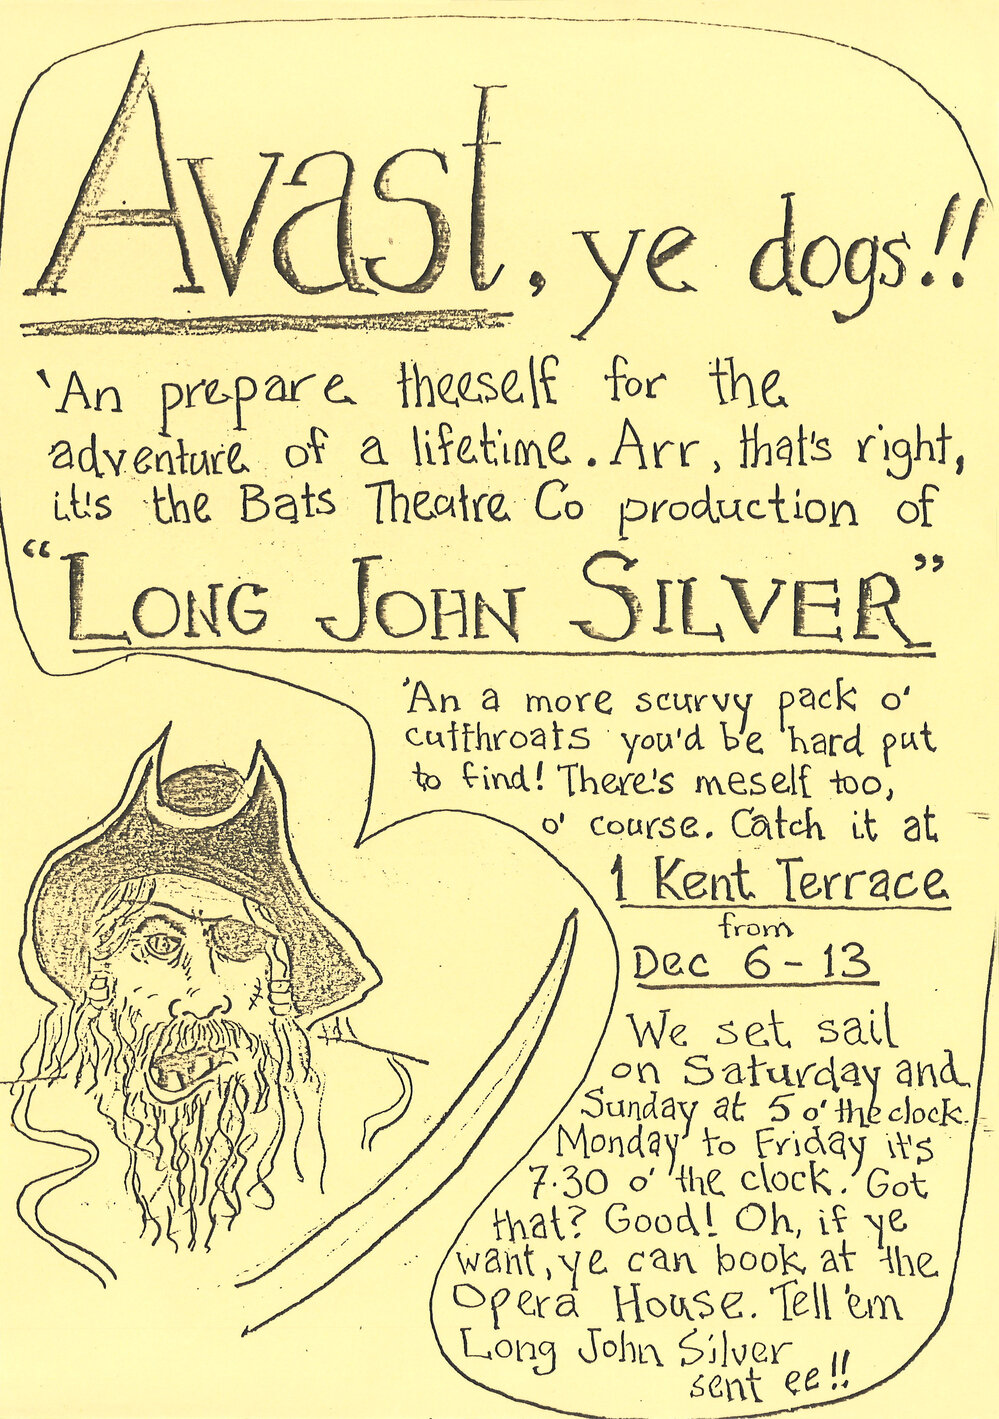 Avast, ye dogs!!
'An prepare theeself for the
adventure of a lifetime. Arr, that's right,
it's the Bats Theatre Co production of
"LONG JOHN SILVER"
'An a more scurvy pack o'
cutthroats you'd be hard put
to find! There's meself too,
o' course. Catch it at
1 Kent Terrace
from
Dec 6-13
We set sail
on Saturday and
Sunday at 5 o' the clock.
Monday to Friday it's
7.30 o' the clock. Got
that? Good! Oh, if ye
want, ye can book at the
Opera House. Tell 'em
Long John Silver
sent ee!!